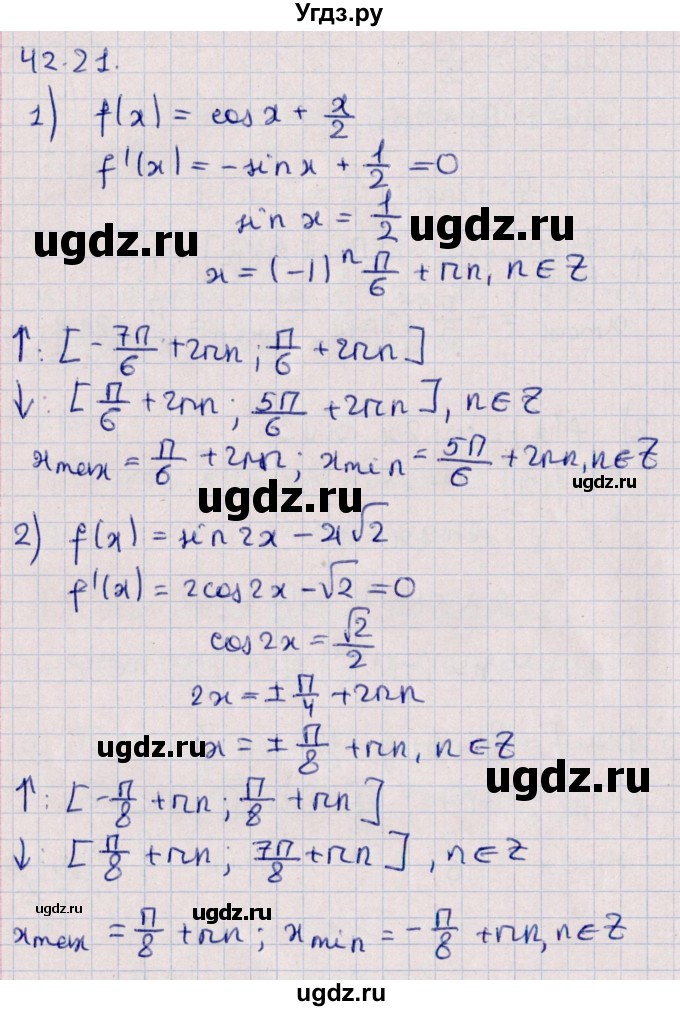 Угдз.ру
42.21.
1) f(x) = cos x + x/2
f'(x) = -sin x + 1/2 = 0
sin x = 1/2
ugdz.ru
x = (-1)^n π/6 + πn, n ∈ Z
↑: [-7π/6 + 2πn; π/6 + 2πn]
↓: [π/6 + 2πn; 5π/6 + 2πn], n ∈ Z
xmax = π/6 + 2πn; xmin = 5π/6 + 2πn, n ∈ Z
ugdz.ru
ugdz.ru
2) f(x) = sin 2x - x√2
f'(x) = 2cos 2x - √2 = 0
cos 2x = √2/2
2x = ± π/4 + 2πn
ugdz.ru
x = ± π/8 + πn, n ∈ Z
ugdz.ru
↑: [-π/8 + πn; π/8 + πn]
↓: [π/8 + πn; 7π/8 + πn], n ∈ Z
ugdz.ru
ugdz.ru
xmax = π/8 + πn; xmin = -π/8 + πn, n ∈ Z
ugdz.ru